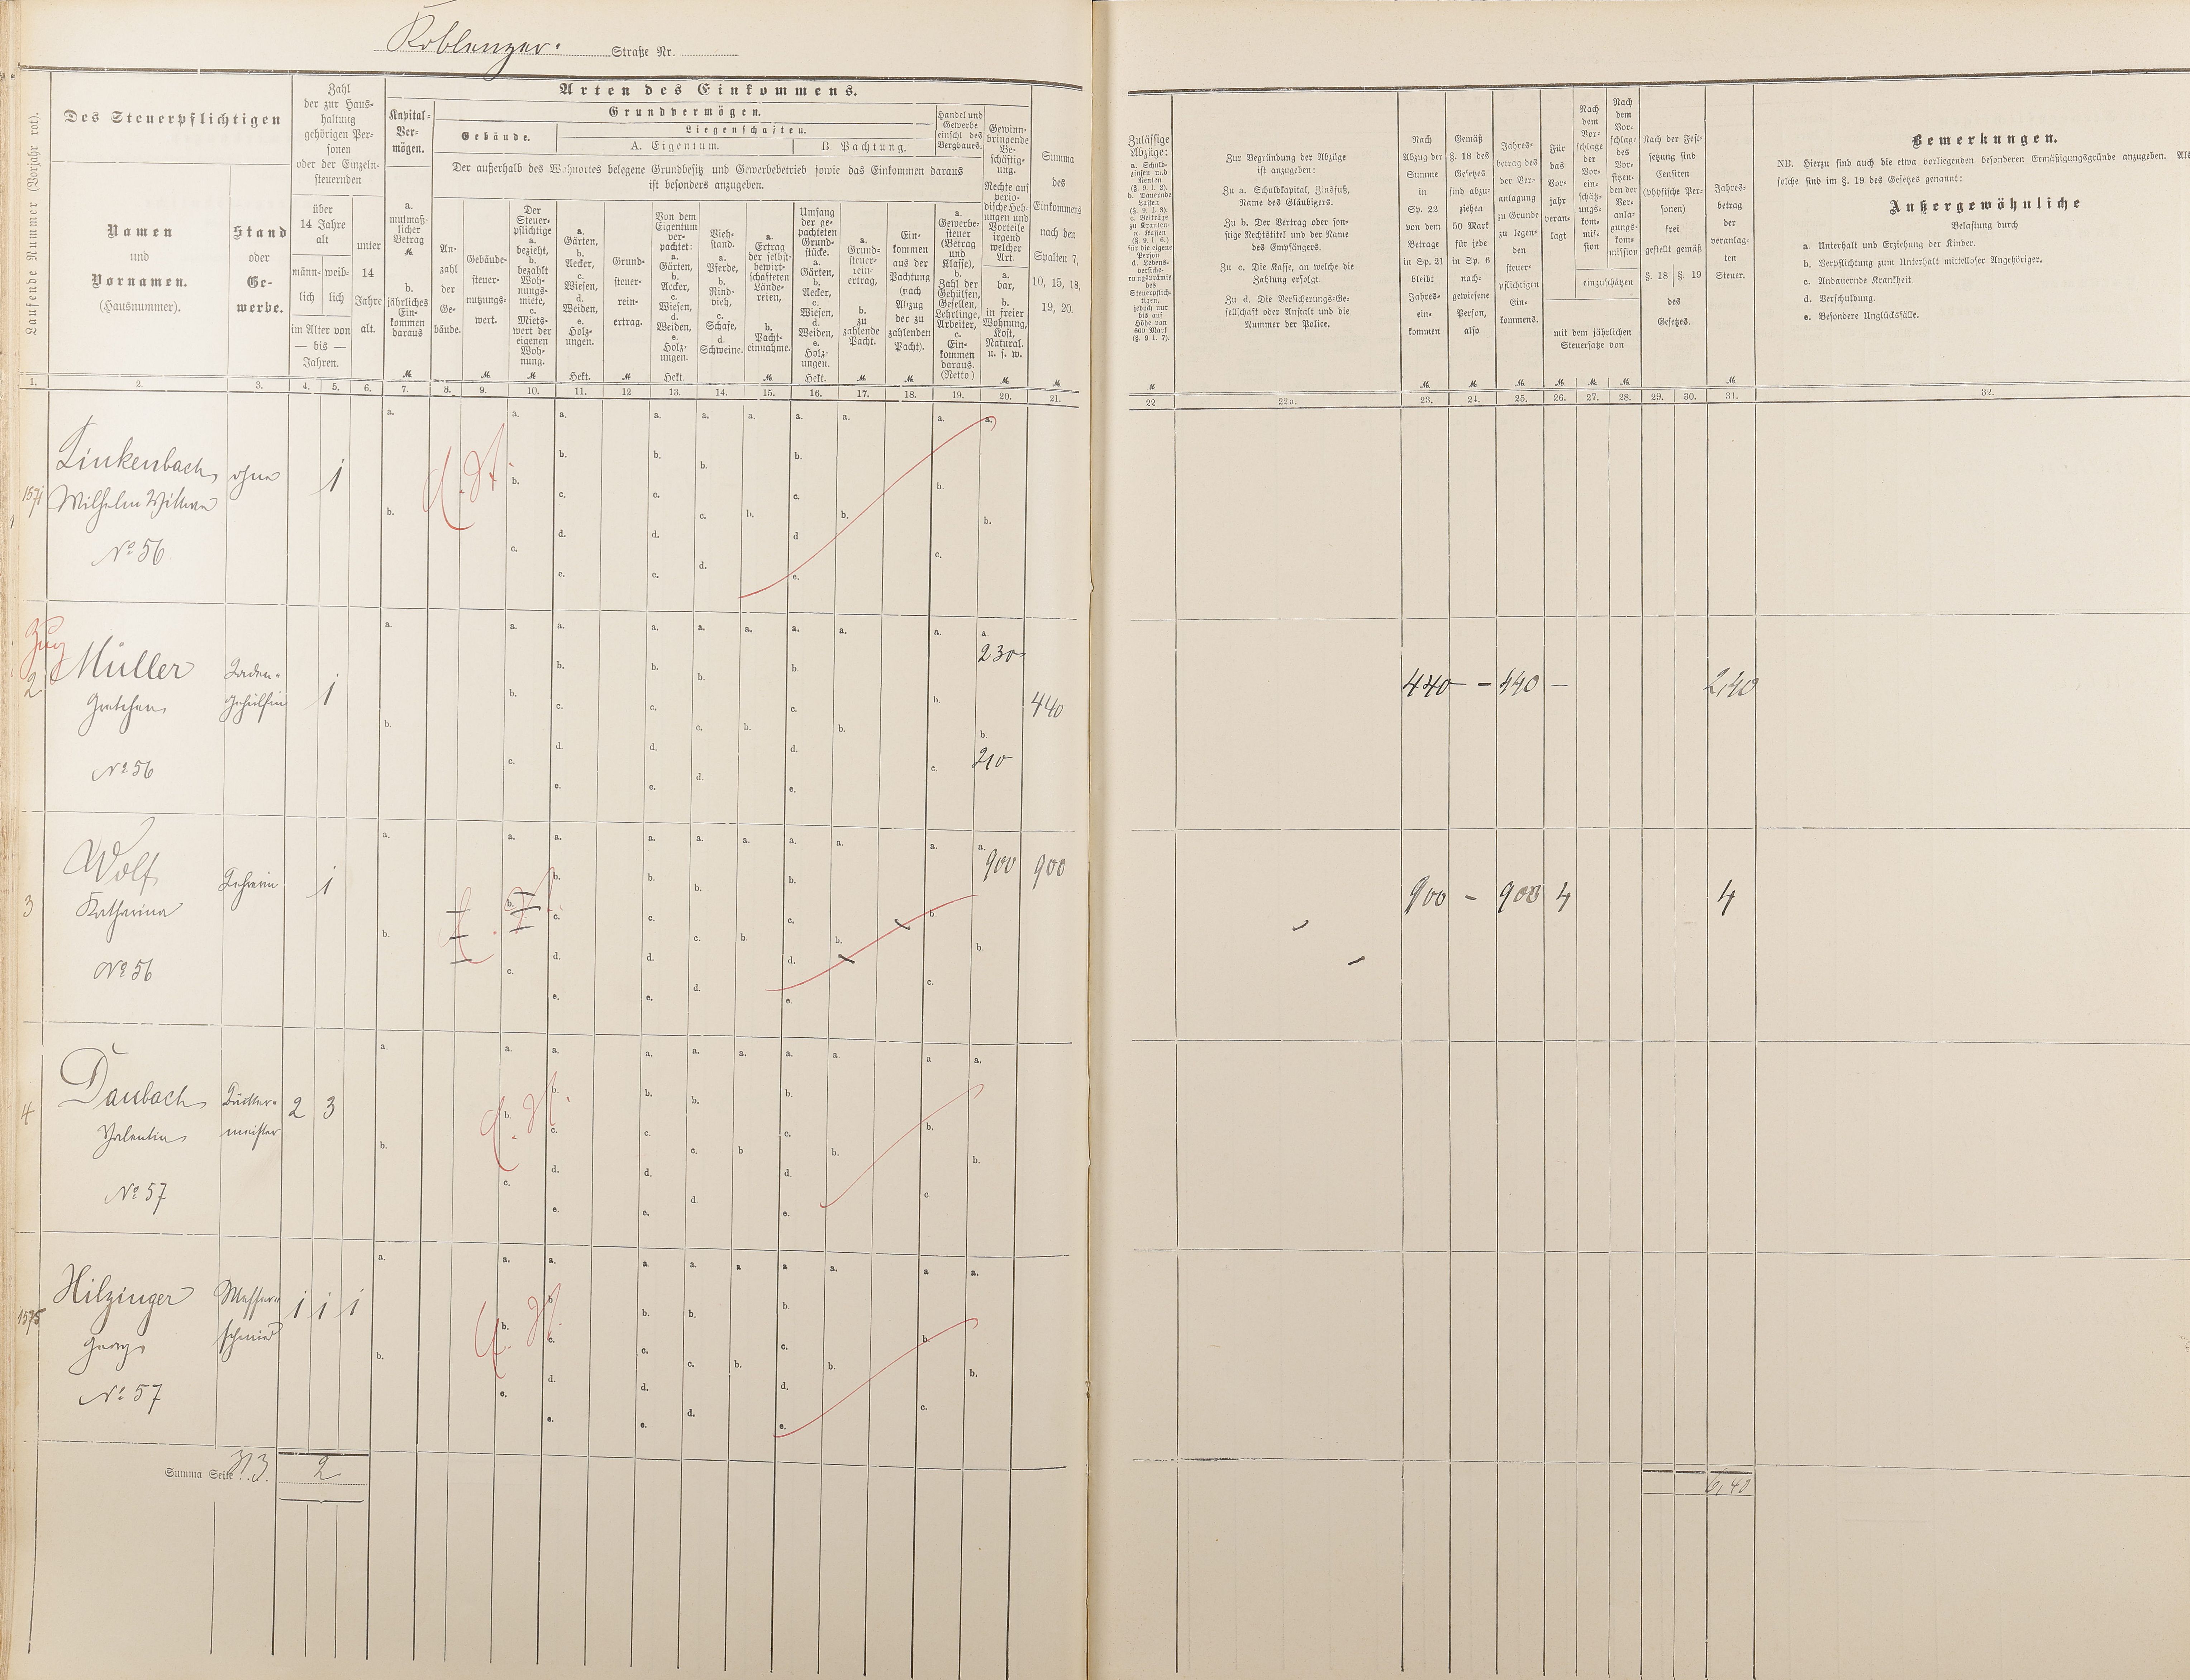 Koblenzer. Straße Nr.
Laufende Nummer (Vorjahr rot).
Des Steuerpflichtigen
Namen
und
Vornamen.
(Hausnummer).
Stand
oder
Ge-
werbe.
Zahl
der zur Haus-
haltung
gehörigen Per-
sonen
oder der Einzeln-
steuernden
über
14 Jahre
alt
männ-
lich
weib-
lich
im Alter von
— bis —
Jahren.
unter
14
Jahre
alt.
Arten des Einkommens.
Kapital-
Ver-
mögen.
a.
mutmaß-
licher
Betrag
M
b.
jährliches
Ein-
kommen
daraus
M.
Grundvermögen.
Gebäude.
Liegenschaften.
A. Eigentum.
B. Pachtung.
Der außerhalb des Wohnortes belegene Grundbesitz und Gewerbebetrieb sowie das Einkommen daraus
ist besonders anzugeben.
An-
zahl
der
Ge-
bäude.
Gebäude-
steuer-
nutzungs-
wert.
M.
Der
Steuer-
pflichtige
a.
bezieht,
b.
bezahlt
Woh-
nungs-
miete,
c.
Miets-
wert der
eigenen
Woh-
nung.
M
a.
Gärten,
b.
Aecker,
c.
Wiesen,
d.
Weiden,
e.
Holz-
ungen.
Hekt.
Grund-
steuer-
rein-
ertrag.
M
Von dem
Eigentum
ver-
pachtet:
a.
Gärten,
b.
Aecker,
c.
Wiesen,
d.
Weiden,
e.
Holz-
ungen.
Hekt.
Vieh-
stand.
a.
Pferde,
b.
Rind-
vieh,
c.
Schafe,
d.
Schweine.
a.
Ertrag
der selbst-
bewirt-
schafteten
Lände-
reien,
b.
Pacht-
einnahme.
M
Umfang
der ge-
pachteten
Grund-
stücke.
a.
Gärten,
b.
Aecker,
c.
Wiesen,
d.
Weiden,
e.
Holz-
ungen.
Hekt.
a.
Grund-
steuer-
rein-
ertrag,
b.
zu
zahlende
Pacht.
M
Ein-
kommen
aus der
Pachtung
(nach
Abzug
der zu
zahlenden
Pacht).
M
Handel und
Gewerbe
einschl des
Bergbaues.
a.
Gewerbe-
steuer
(Betrag
und
Klasse),
b.
Zahl der
Gehülfen,
Gesellen,
Lehrlinge,
Arbeiter,
c.
Ein-
kommen
daraus.
(Netto)
Gewinn-
bringende
Be-
schäftig-
ung.
Rechte auf
perio-
dische Heb-
ungen und
Vorteile
irgend
welcher
Art.
a.
bar,
b.
in freier
Wohnung,
Kost,
Natural.
u. s. w.
M
Summa
des
Einkommens
nach den
Spalten 7,
10, 15, 18,
19, 20.
M
Zulässige
Abzüge:
a. Schuld-
zinsen und
Renten
(§. 9. I. 2).
b. Dauernde
Lasten
(§. 9. I. 3).
c. Beiträge
zu Kranken-
rc Kassen
(§. 9. I. 6.)
für die eigene
Person
d. Lebens-
versiche-
rungsprämie
des
Steuerpflich-
tigen,
jedoch nur
bis auf
Höhe von
600 Mark
(§. 9 I. 7).
Zur Begründung der Abzüge
ist anzugeben:
Zu a. Schuldkapital, Zinsfuß,
Name des Gläubigers.
Zu b. Der Vertrag oder son-
stige Rechtstitel und der Name
des Empfängers.
Zu c. Die Kasse, an welche die
Zahlung erfolgt.
Zu d. Die Versicherungs-Ge-
sellschaft oder Anstalt und die
Nummer der Police.
Nach
Abzug der
Summe
in
Sp. 22
von dem
Betrage
in Sp. 21
bleibt
Jahres-
ein-
kommen
M.
Gemäß
§. 18 des
Gesetzes
sind abzu-
ziehen
50 Mark
für jede
in Sp. 6
nach-
gewiesene
Person,
also
M.
Jahres-
betrag des
der Ver-
anlagung
zu Grunde
zu legen-
den
steuer-
pflichtigen
Ein-
kommens.
M
Für
das
Vor-
jahr
veran-
lagt
Nach
dem
Vor-
schlage
der
Vor-
ein-
schätz-
ungs-
kom-
mis-
sion
Nach
dem
Vor-
schlage
des
Vor-
sitzen-
den der
Ver-
anla-
gungs-
kom-
mission
einzuschätzen
mit dem jährlichen
Steuersatze von
Nach der Fest-
setzung sind
Censiten
(physische Per-
sonen)
frei
gestellt gemäß
§. 18
§. 19
des
Gesetzes.
Jahres-
betrag
der
veranlag-
ten
Steuer.
M
Bemerkungen.
NB. Hierzu sind auch die etwa vorliegenden besonderen Ermäßigungsgründe anzugeben. Als
solche sind im §. 19 des Gesetzes genannt:
Außergewöhnliche
Belastung durch
a. Unterhalt und Erziehung der Kinder.
b. Verpflichtung zum Unterhalt mittelloser Angehöriger.
c. Andauernde Krankheit
d. Verschuldung.
e. Besondere Unglücksfälle.
1. 2. 3. 4. 5. 6. 7. 8. 9. 10. 11. 12 13. 14. 15. 16. 17. 18. 19. 20. 21. 22 22a. 23. 24. 25. 26. 27. 28. 29. 30. 31. 32.
1571 Linkenbach ohne 1
Wilhelm Wittwe
No 56
2 Müller Laden- 1 230 440 440 - 440 — 2,40
Gretchen Gehülfin
No 56 210
3 Wolf Lehrerin 1 900 900 900 - 900 4 4
Katharina
No 56
4 Daubach Büttner- 2 3
Valentin meister
No 57
1575 Hilzinger Messer- 1 1 1
Georg schmied
No 57
Summa Seite 313. 2 6,40